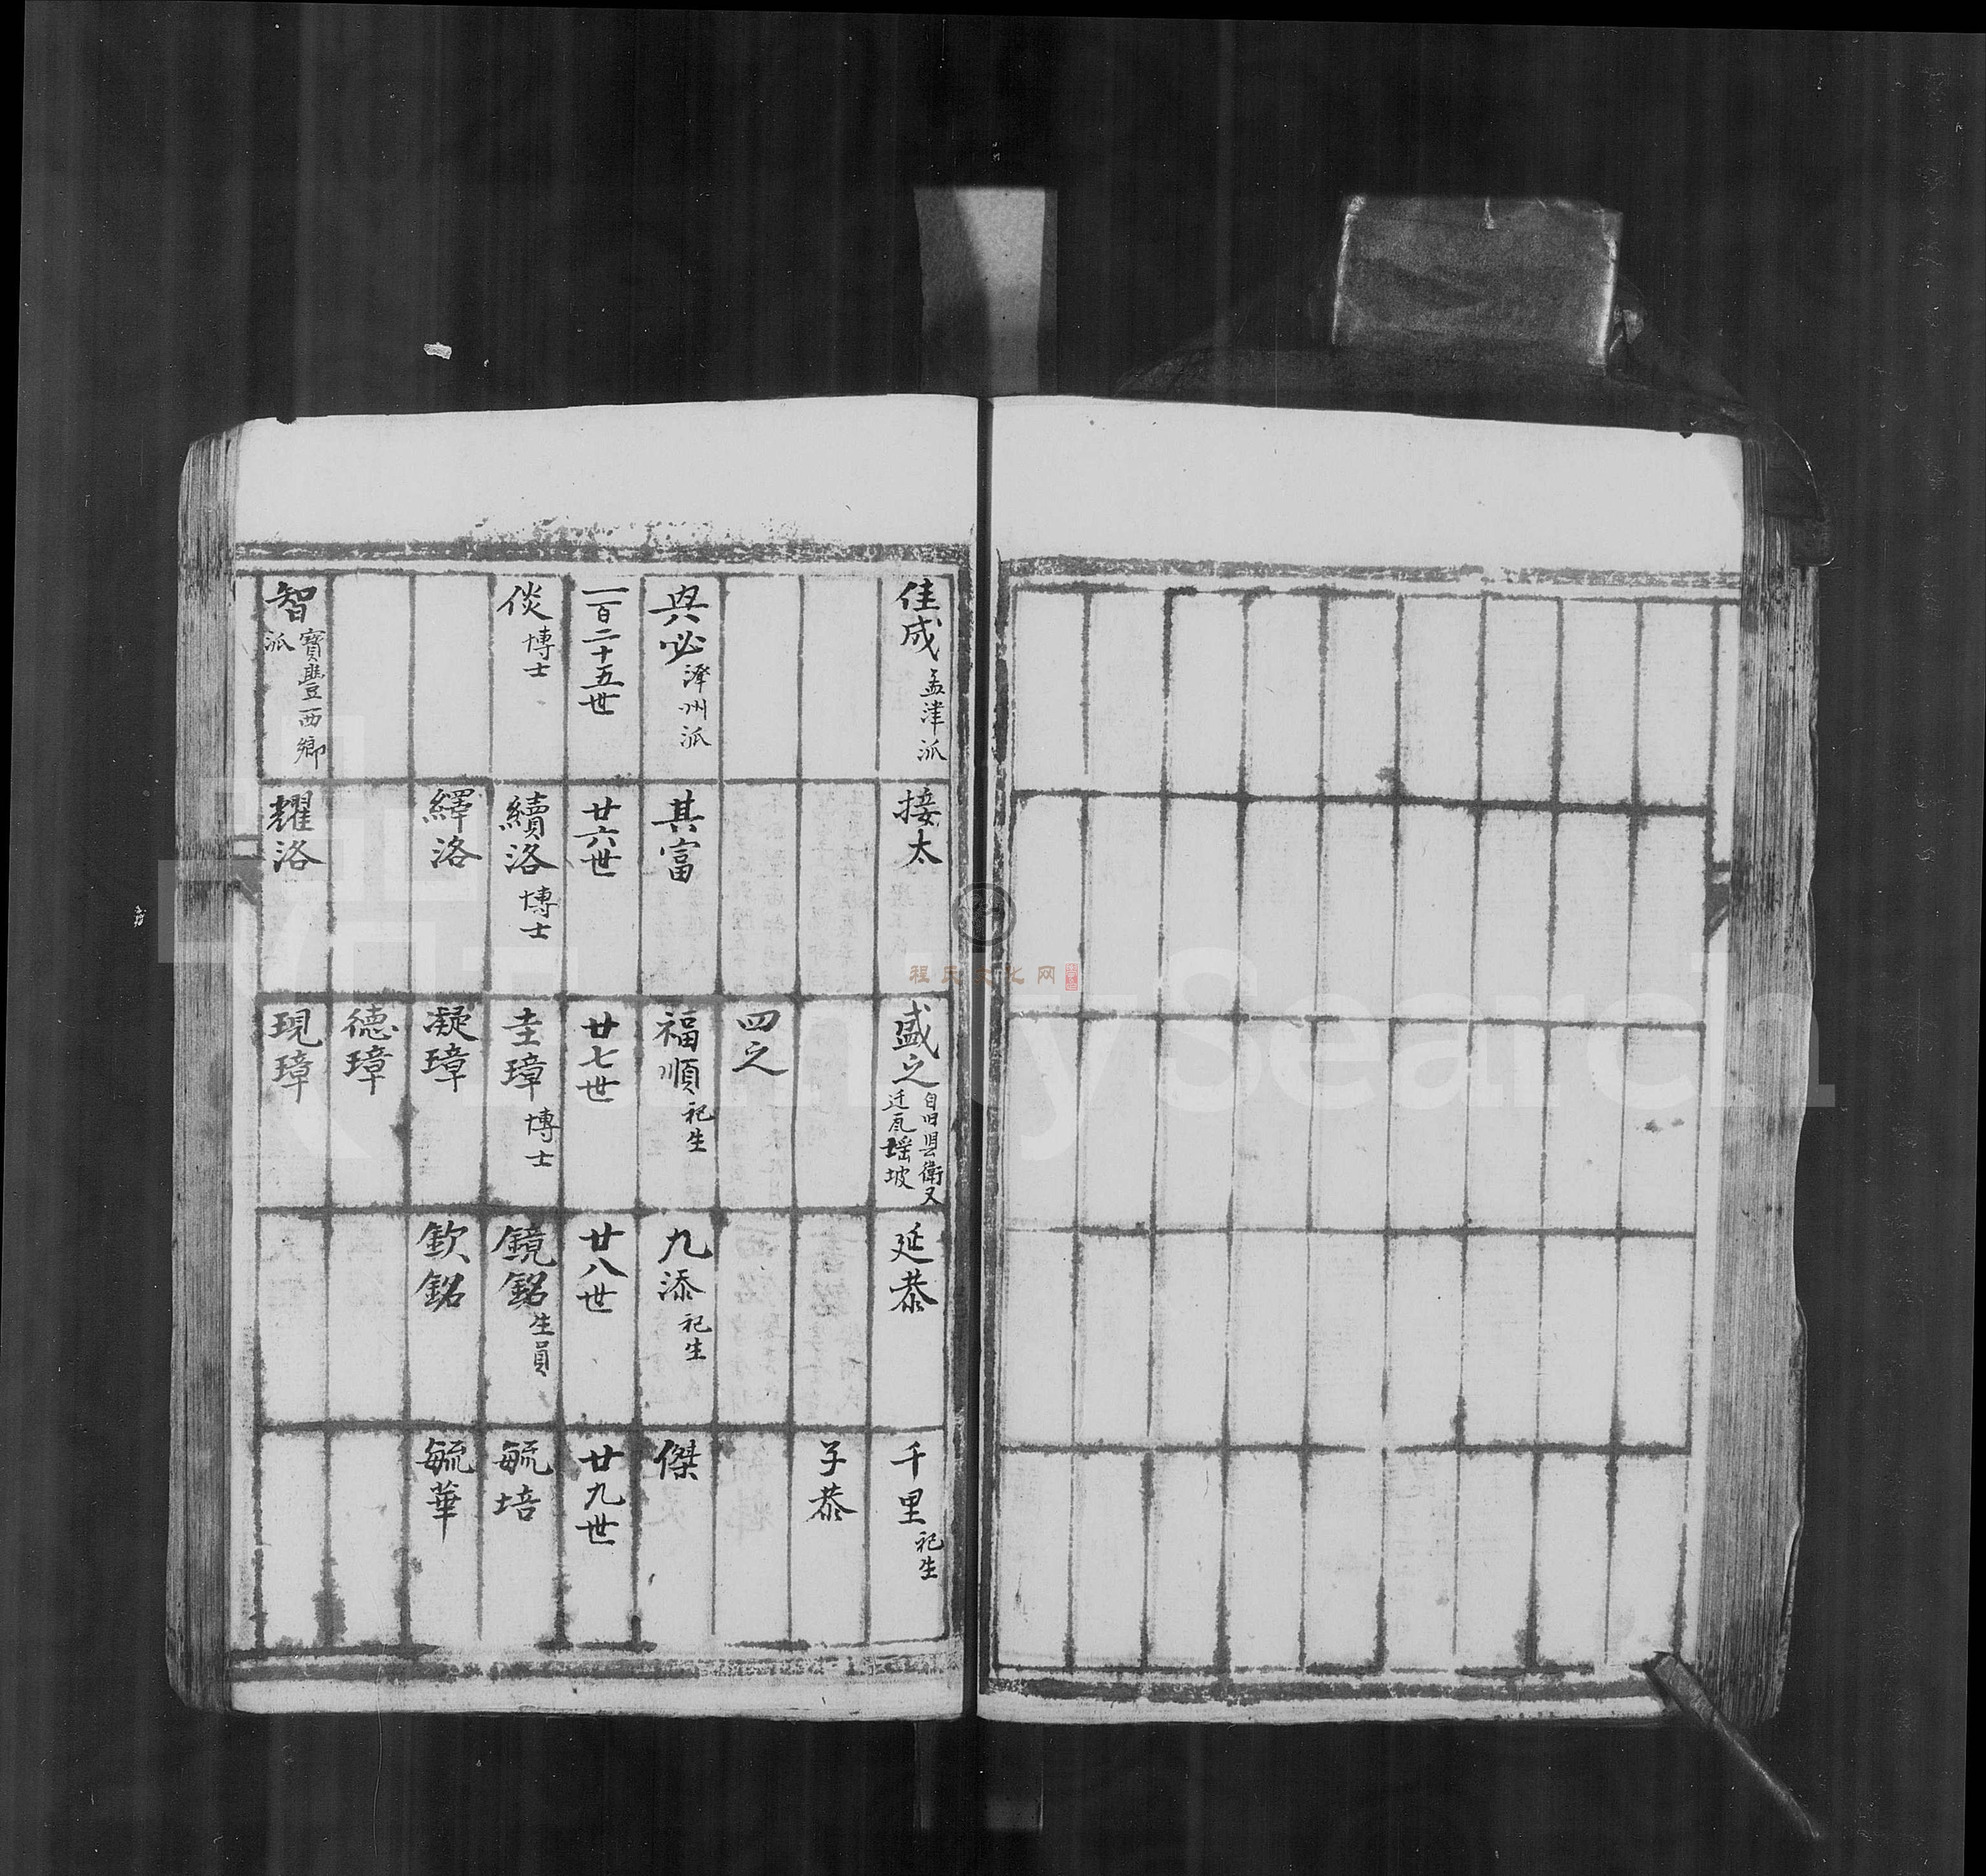 佳成 孟津派
接太
盛之 自旧县衛又迁瓦瑶坡
延恭
千里 祀生
子恭
四之
與必 澤州派
其富
福順 祀生
九添 祀生
傑
一百二十五世
廿六世
廿七世
廿八世
廿九世
倓 博士
續洛 博士
圭璋 博士
鏡銘 生員
毓培
繹洛
凝璋
欽銘
毓華
德璋
智 寶豐西鄉派
耀洛
現璋
程氏文化网
FamilySearch